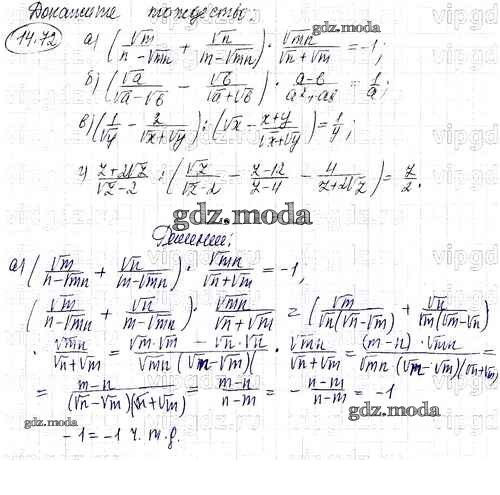 Докажите тождество:
14.72 а) (√m/(n-√mn) + √n/(m-√mn)) · √mn/(√n+√m) = -1;
б) (√a/(√a-√b) - √b/(√a+√b)) · (a-b)/(a²+ab) = 1/a;
в) (1/√y - 2/(√x+√y)) : (√x - (x+y)/(√x+√y)) = 1/y;
г) (z+2√z)/(√z-2) : (√z/(√z-2) - (z-12)/(z-4) - 4/(z+2√z)) = z/2.
gdz.moda
Решение:
а) (√m/(n-√mn) + √n/(m-√mn)) · √mn/(√n+√m) = -1;
(√m/(n-√mn) + √n/(m-√mn)) · √mn/(√n+√m) = (√m/(√n(√n-√m)) + √n/(√m(√m-√n))
· √mn/(√n+√m) = (√m·√m - √n·√n)/(√mn (√n-√m)( · √mn/(√n+√m) = (m-n)·√mn/(√mn·(√n-√m)(√n+√m)) =
= (m-n)/((√n-√m)(√n+√m)) (m-n)/(n-m) = -(n-m)/(n-m) = -1
-1=-1 ч.т.д.
gdz.moda
vipgdz